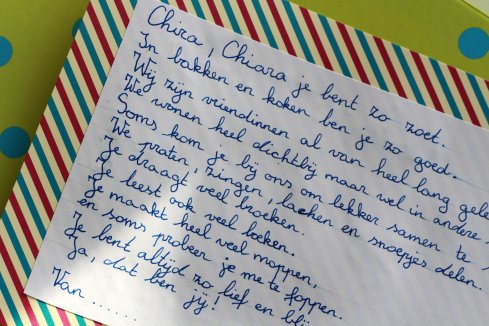 Chira, Chiara je bent zo zoet.
In bakken en koken ben je zo goed.
Wij zijn vriendinnen al van heel lang gele
We wonen heel dichtbij maar wel in andere
Soms kom je bij ons om lekker samen te
We praten, zingen, lachen en snoepjes delen.
Je draagt veel broeken.
Je leest ook veel boeken.
Je maakt heel veel moppen,
en soms probeer je me te foppen.
Je bent altijd zo lief en blij
Ja, dat ben jij!
Van ......